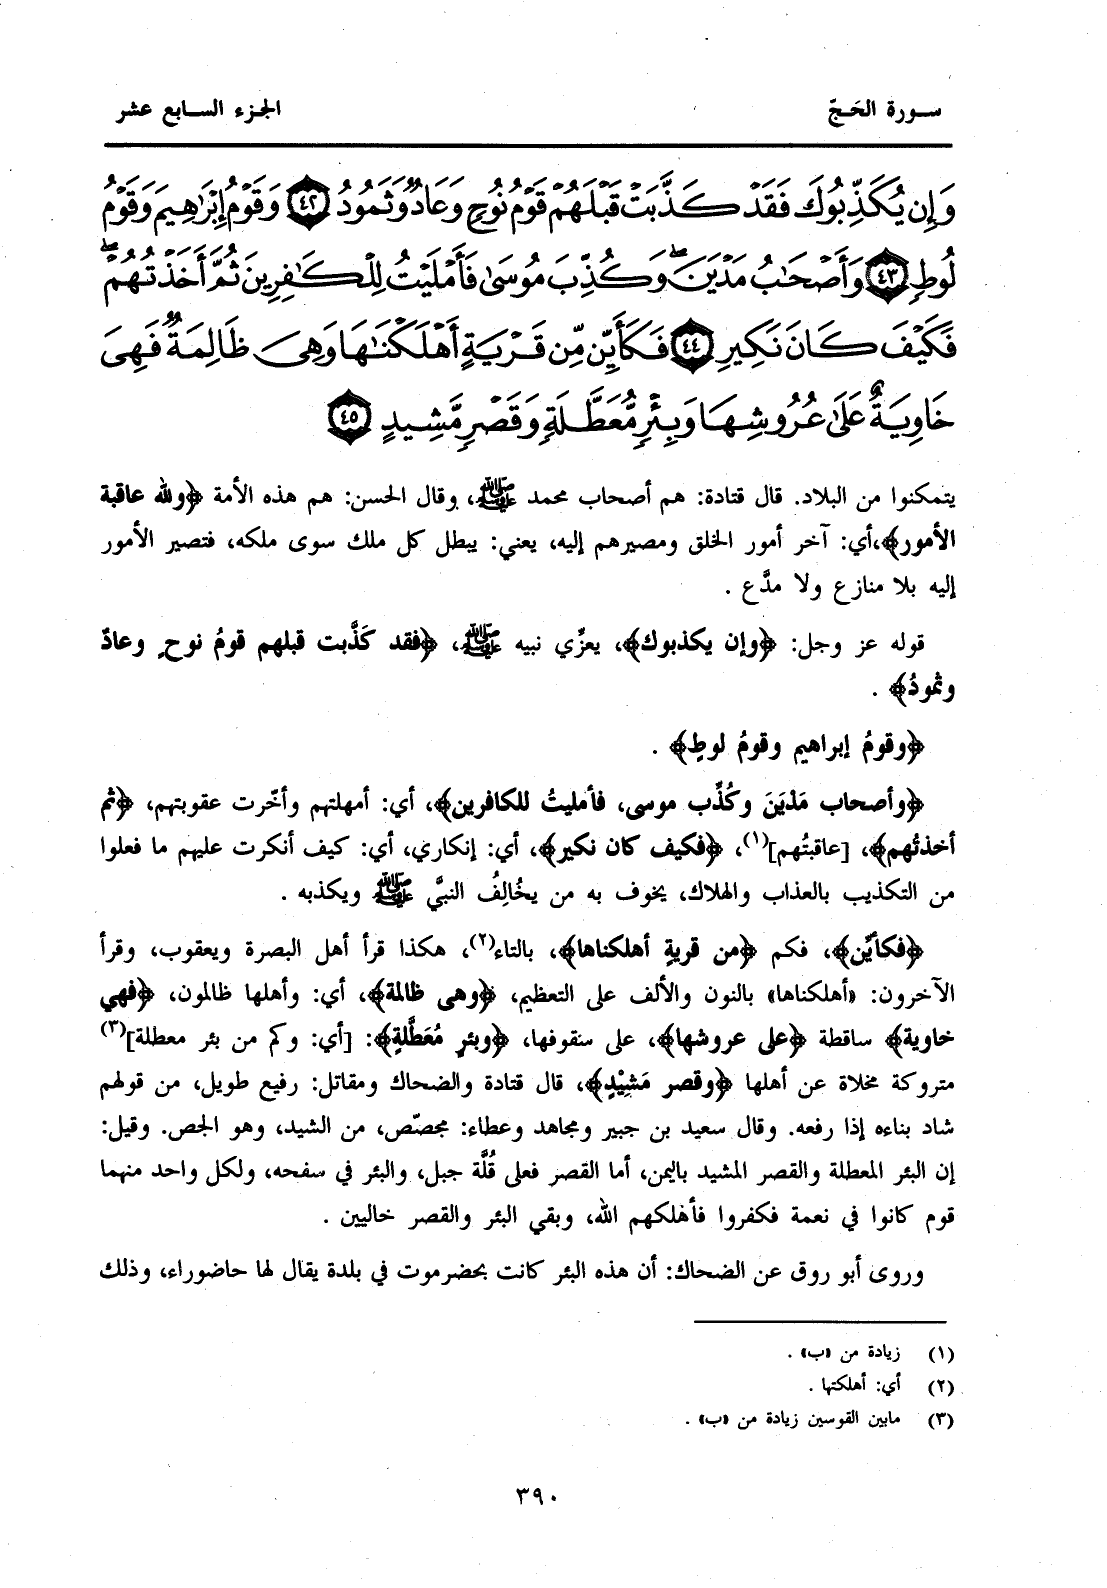 سورة الحَجّ
الجزء السابع عشر
وَإِن يُكَذِّبُوكَ فَقَدْ كَذَّبَتْ قَبْلَهُمْ قَوْمُ نُوحٍ وَعَادٌ وَثَمُودُ ﴿٤٢﴾ وَقَوْمُ إِبْرَاهِيمَ وَقَوْمُ
لُوطٍ ﴿٤٣﴾ وَأَصْحَابُ مَدْيَنَ ۖ وَكُذِّبَ مُوسَىٰ فَأَمْلَيْتُ لِلْكَافِرِينَ ثُمَّ أَخَذْتُهُمْ ۖ
فَكَيْفَ كَانَ نَكِيرِ ﴿٤٤﴾ فَكَأَيِّن مِّن قَرْيَةٍ أَهْلَكْنَاهَا وَهِيَ ظَالِمَةٌ فَهِيَ
خَاوِيَةٌ عَلَىٰ عُرُوشِهَا وَبِئْرٍ مُّعَطَّلَةٍ وَقَصْرٍ مَّشِيدٍ ﴿٤٥﴾
يتمكنوا من البلاد. قال قتادة: هم أصحاب محمد ﷺ، وقال الحسن: هم هذه الأمة ﴿ولله عاقبة
الأمور﴾،أي: آخر أمور الخلق ومصيرهم إليه، يعني: يبطل كل ملك سوى ملكه، فتصير الأمور
إليه بلا منازع ولا مدَّع .
قوله عز وجل: ﴿وإن يكذبوك﴾، يعزِّي نبيه ﷺ، ﴿فقد كَذَّبت قبلهم قومُ نوحٍ وعادٌ
وثمودُ﴾ .
﴿وقومُ إبراهيم وقومُ لوطٍ﴾ .
﴿وأصحاب مَدْيَنَ وكُذِّب موسى، فأمليتُ للكافرين﴾، أي: أمهلتهم وأخّرت عقوبتهم، ﴿ثم
أخذتُهم﴾، [عاقبتُهم](١)، ﴿فكيف كان نكير﴾، أي: إنكاري، أي: كيف أنكرت عليهم ما فعلوا
من التكذيب بالعذاب والهلاك، يخوف به من يخُالِفُ النبيَّ ﷺ ويكذبه .
﴿فكأيّن﴾، فكم ﴿من قريةٍ أهلكناها﴾، بالتاء(٢)، هكذا قرأ أهل البصرة ويعقوب، وقرأ
الآخرون: «أهلكناها» بالنون والألف على التعظيم، ﴿وهى ظالمة﴾، أي: وأهلها ظالمون، ﴿فهي
خاوية﴾ ساقطة ﴿على عروشها﴾، على سقوفها، ﴿وبئرٍ مُعَطَّلةٍ﴾: [أي: وكم من بئر معطلة](٣)
متروكة مخلاة عن أهلها ﴿وقصر مَشِيْدٍ﴾، قال قتادة والضحاك ومقاتل: رفيع طويل، من قولهم
شاد بناءه إذا رفعه. وقال سعيد بن جبير ومجاهد وعطاء: مجصّص، من الشيد، وهو الجص. وقيل:
إن البئر المعطلة والقصر المشيد باليمن، أما القصر فعلى قُلَّة جبل، والبئر في سفحه، ولكل واحد منهما
قوم كانوا في نعمة فكفروا فأهلكهم الله، وبقي البئر والقصر خاليين .
وروى أبو روق عن الضحاك: أن هذه البئر كانت بحضرموت في بلدة يقال لها حاضوراء، وذلك
(١) زيادة من «ب» .
(٢) أي: أهلكتها .
(٣) مابين القوسين زيادة من «ب» .
٣٩٠